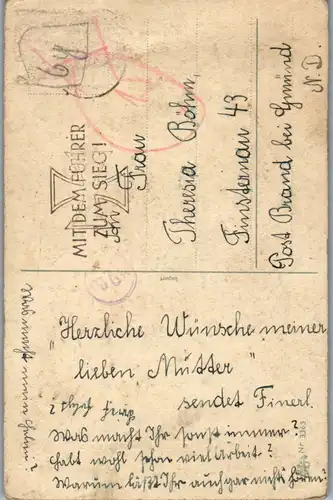 64
MIT DEM FÜHRER
ZUM SIEG!
An Frau
Theresia Böhm,
Finsternau 43
Post Brand bei Gmünd
N. D.
"Herzliche Wünsche meiner
lieben Mutter"
sendet Finerl.
Was macht Ihr sonst immer?
habt wohl schon viel Arbeit?
Warum laßt Ihr auch gar nichts hören?
Was macht mein
Nr. 3363